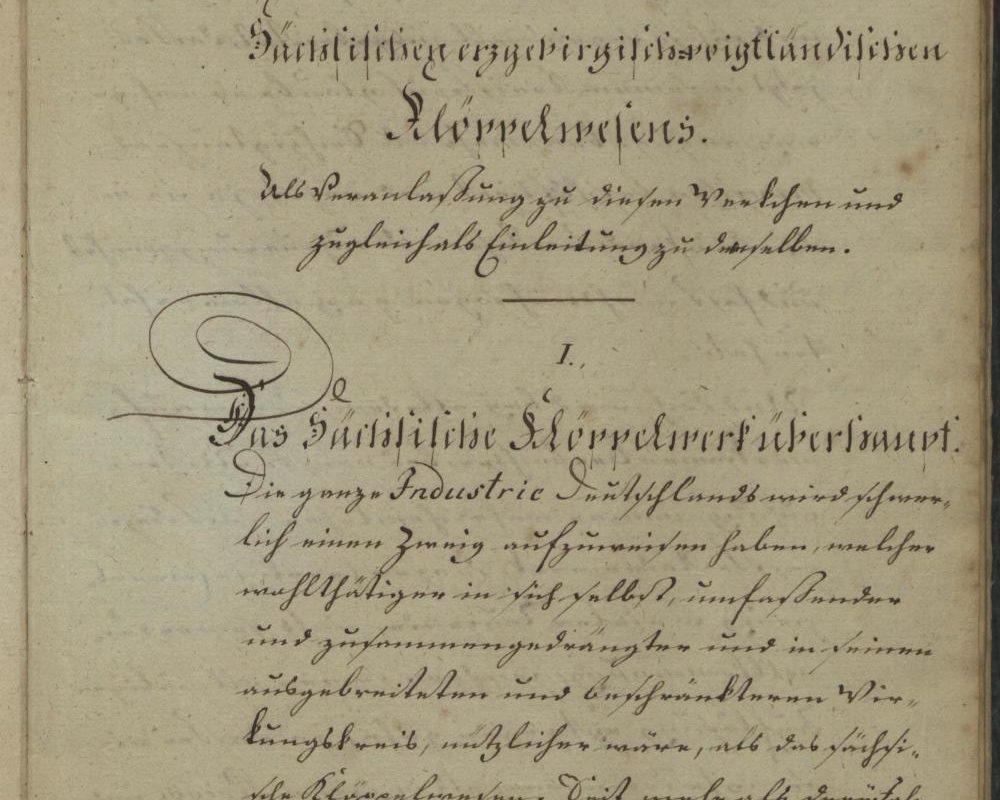 Sächsischen erzgebirgisch-voigtländischen
Klöppelwesens.
Als Veranlaßung zu diesen Werkchen und
zugleich als Einleitung zu demselben.
I.
Das Sächsische Klöppelwerk überhaupt.
Die ganze Industrie Deutschlands wird schwer-
lich einen Zweig aufzuweisen haben, welcher
wohlthätiger in sich selbst, umfaßender
und zusammengedrängter und in seinen
ausgebreiteten und beschränkteren Wir-
kungskreis, nützlicher wäre, als das sächsi-
sche Klöppelwesen. Seit mehr als